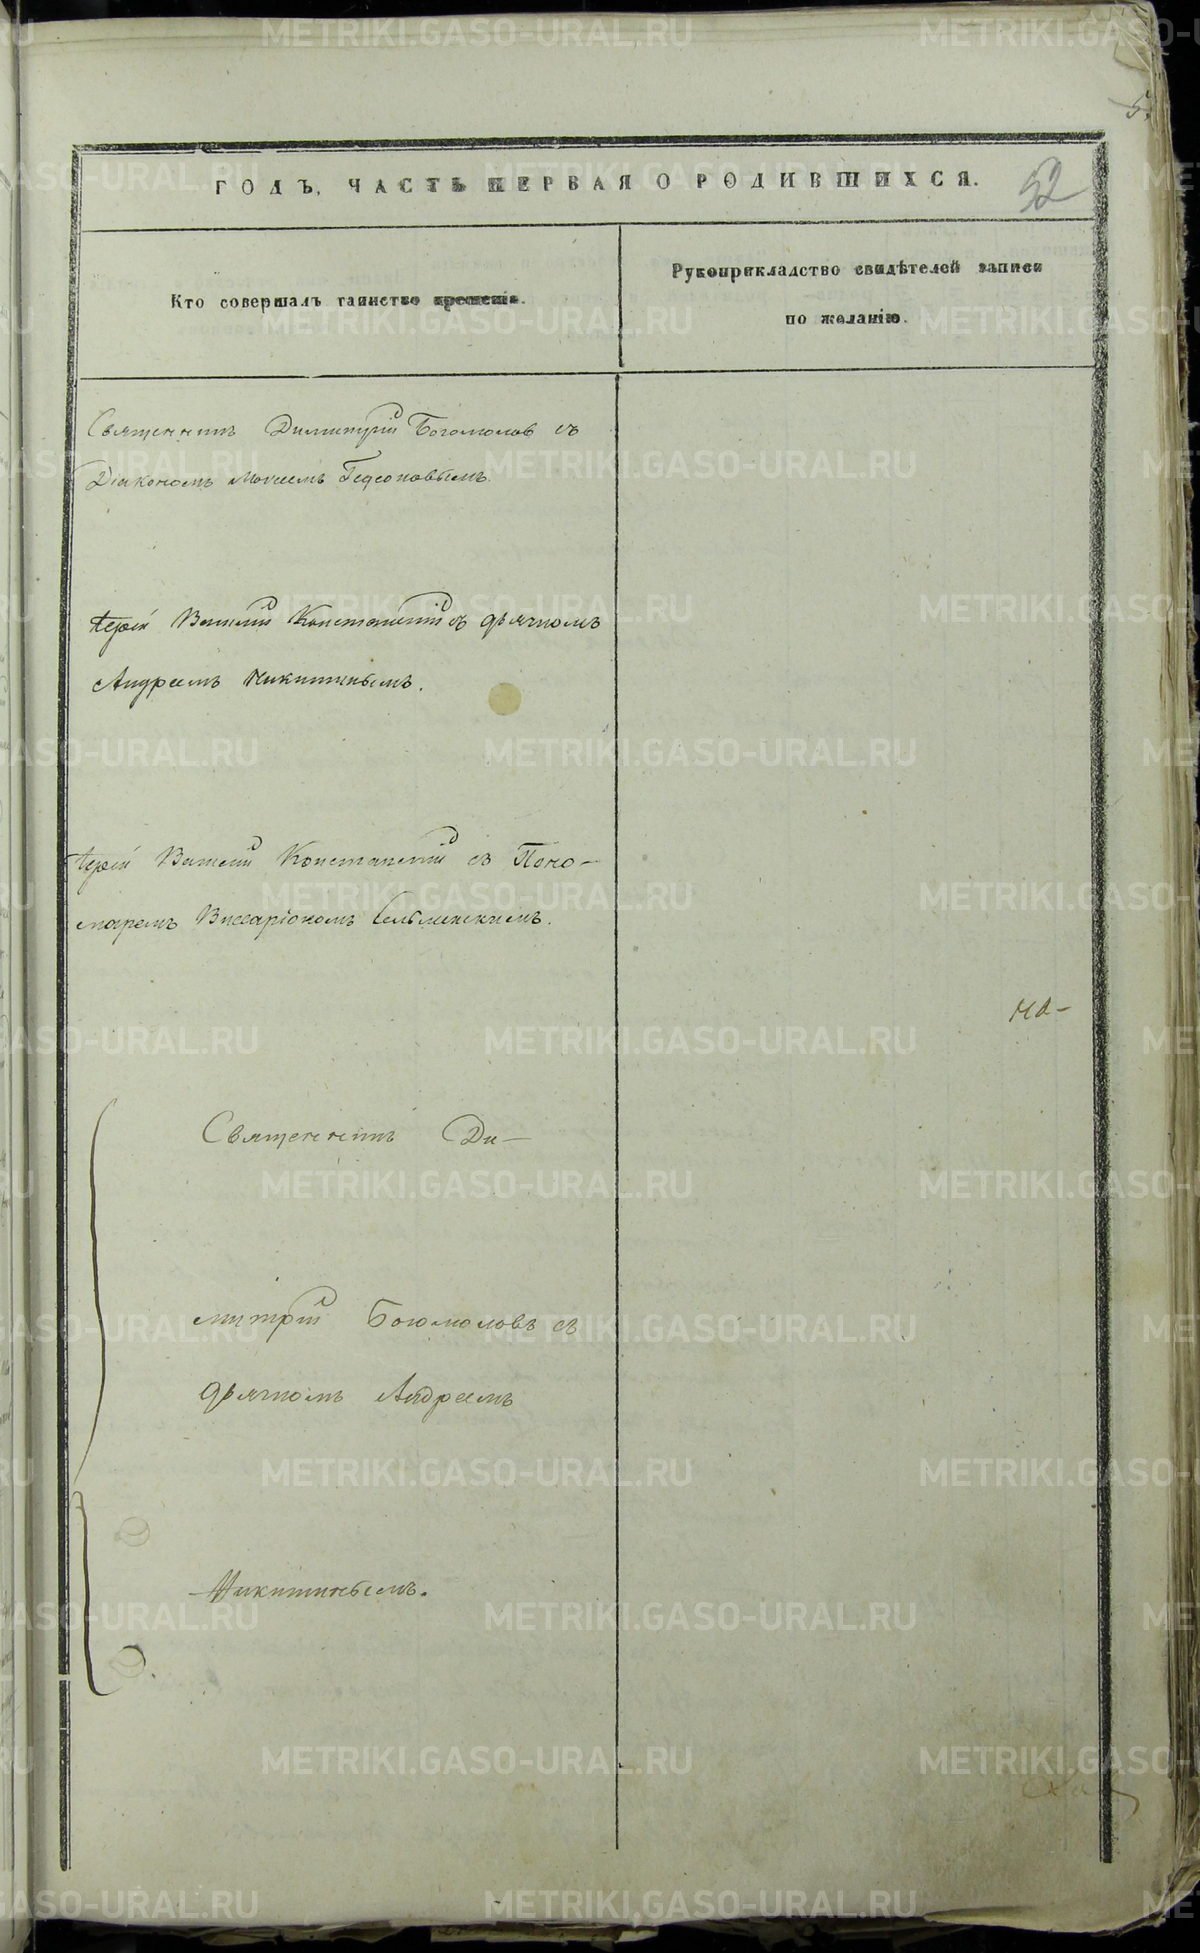 5
ГОДЪ, ЧАСТЬ ПЕРВАЯ О РОДИВШИХСЯ.
52
Кто совершалъ таинство крещенія.
Рукоприкладство свидѣтелей записи
по желанію.
Священникъ Димитрій Богомолов съ
Діакономъ Моисеемъ Гедеоновымъ.
Іерей Василій Константій съ дьячкомъ
Андреемъ Никитинымъ.
Іерей Василій Константій съ Поно-
маремъ Виссаріономъ
на-
Священникъ Ди-
митрій Богомоловъ съ
дьячкомъ Андреемъ
Никитинымъ.
METRIKI.GASO-URAL.RU